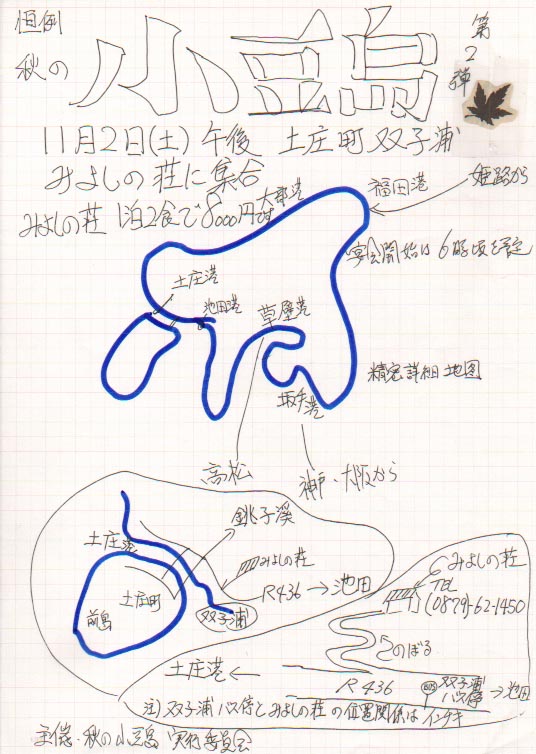 恒例
秋の
小豆島
第2弾
11月2日(土)午後 土庄町双子浦
みよしの荘に集合
みよしの荘 1泊2食で8000円です
大部港
福田港
姫路から
宴会開始は6時頃を予定
土庄港
池田港
草壁港
精密詳細地図
坂手港
高松
神戸・大阪から
銚子渓
土庄港
みよしの荘
R436→池田
土庄町
前島
双子浦
みよしの荘
TEL
(0879)-62-1450
のぼる
土庄港←
R436
双子浦
バス停
→池田
注)双子浦バス停とみよしの荘の位置関係はインチキ
主催・秋の小豆島 実行委員会